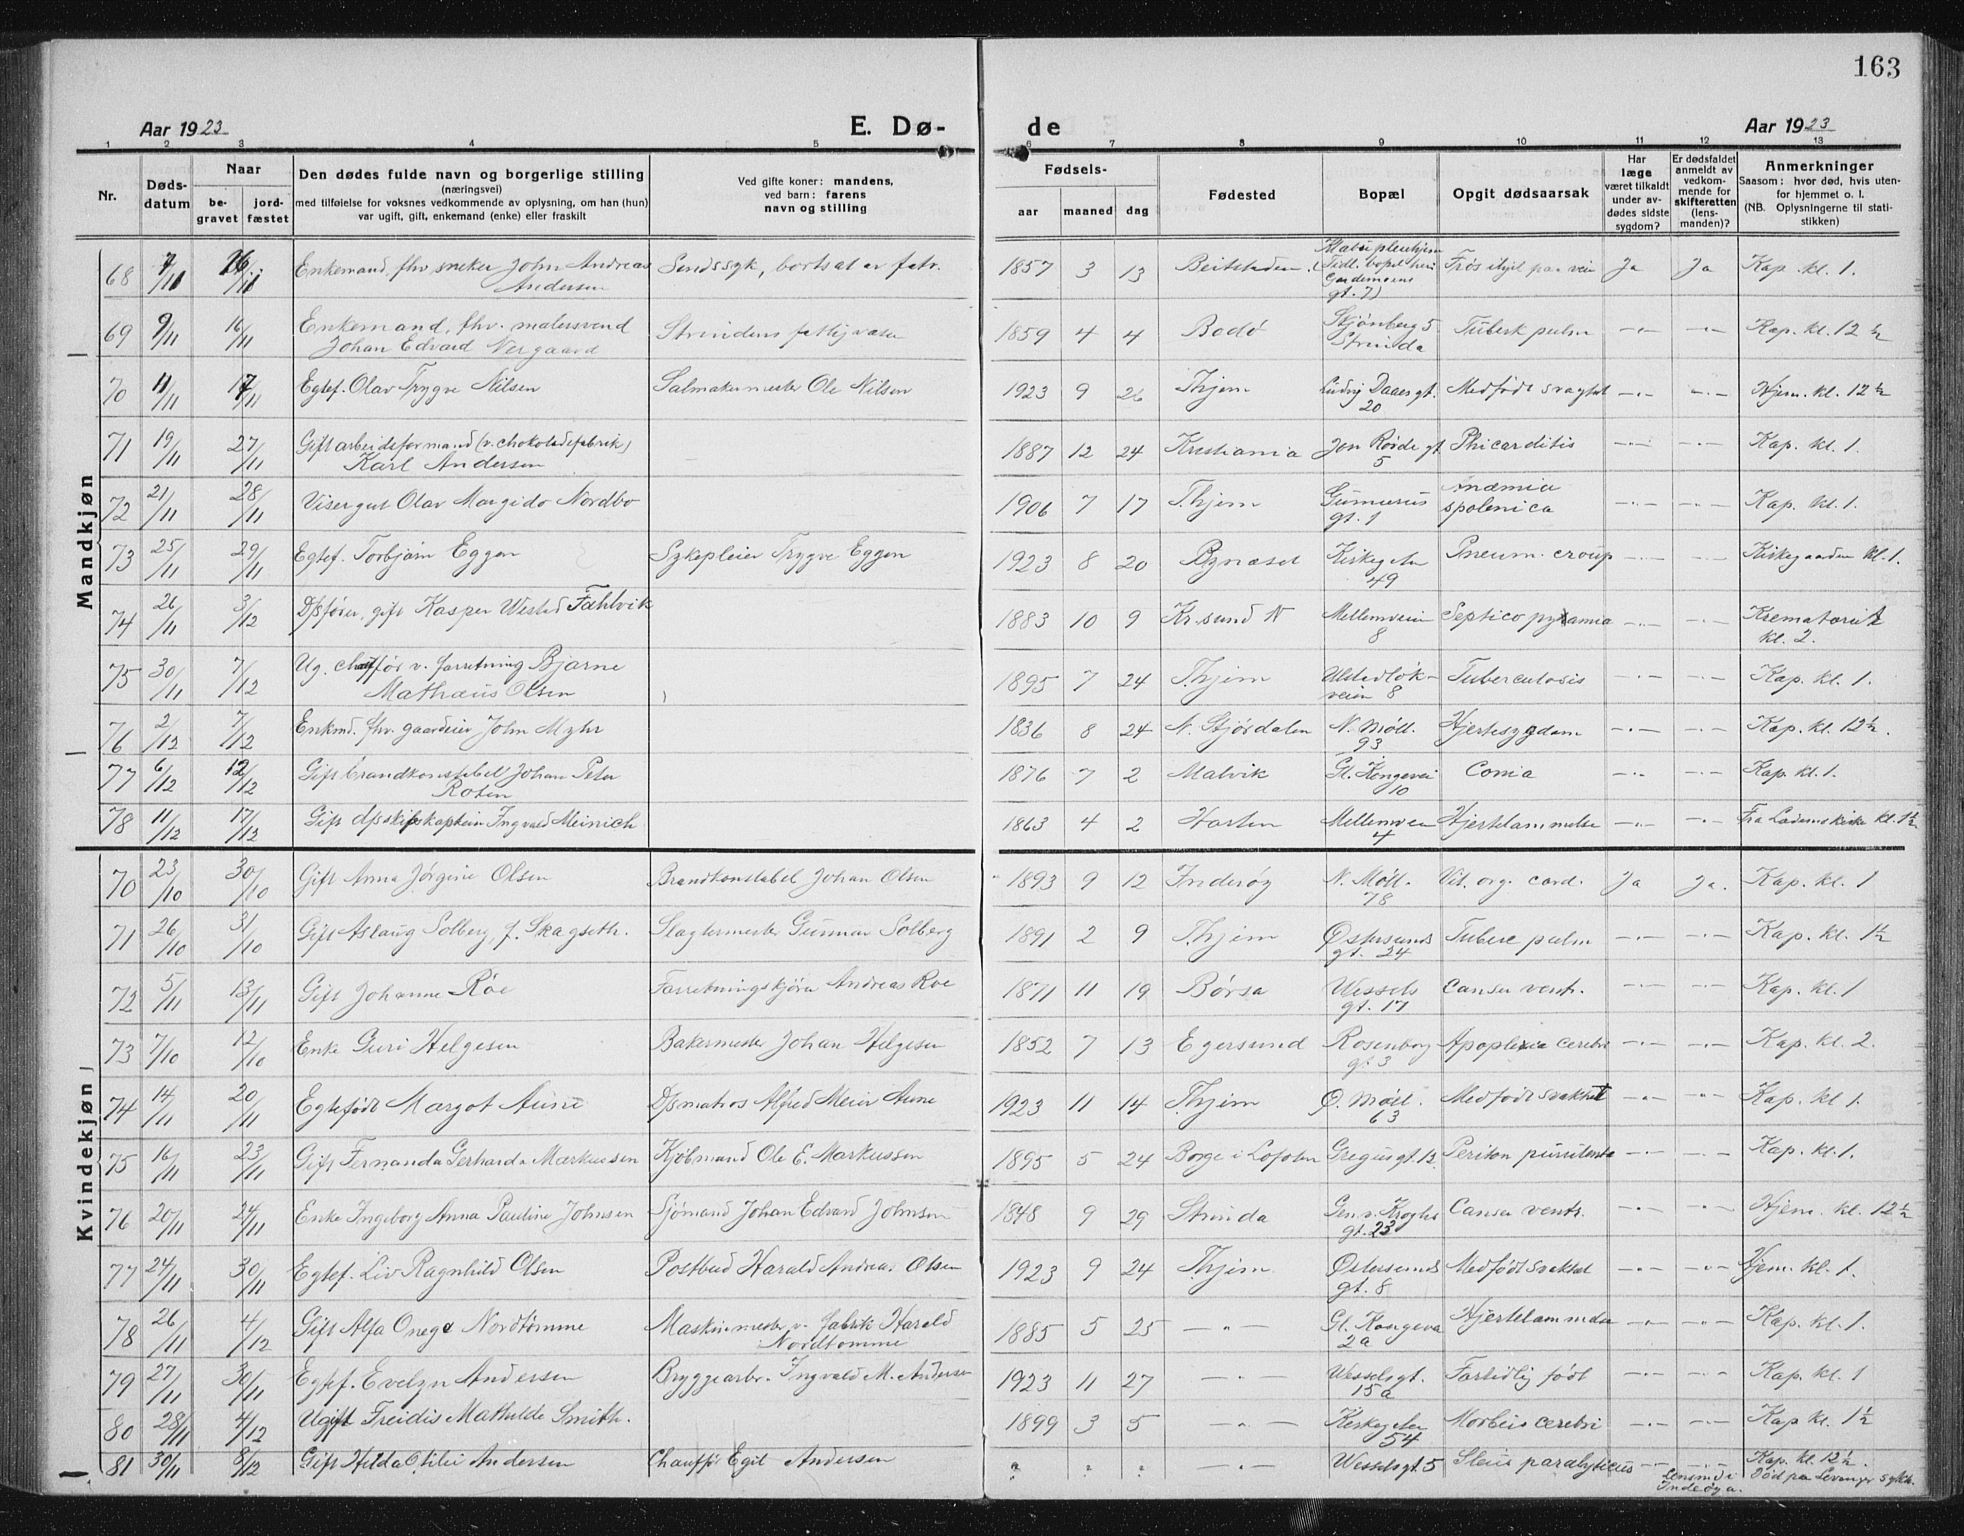 163
Aar 1923
E. Dø-
de
Aar 1923
1 2 3 4 5 6 7 8 9 10 11 12 13
Nr.
Døds-
datum
Naar
be-
gravet
jord-
fæstet
Den dødes fulde navn og borgerlige stilling
(næringsvei)
med tilføielse for voksnes vedkommende av oplysning, om han (hun)
var ugift, gift, enkemand (enke) eller fraskilt
Ved gifte koner: mandens,
ved barn: farens
navn og stilling
Fødsels-
aar maaned dag
Fødested
Bopæl
Opgit dødsaarsak
Har
læge
været tilkaldt
under av-
dødes sidste
sygdom?
Er dødsfaldet
anmeldt av
vedkom-
mende for
skifteretten
(lens-
manden)?
Anmerkninger
Saasom: hvor død, hvis uten-
for hjemmet o. l.
(NB. Oplysningerne til stati-
stikken)
Mandkjøn
68 7/11 16/11 Enkemand, fhv. sneker John Andreas Andersen Sindssyk, bortsat av fatv. 1857 3 13 Beitstaden Tidl. bopæl gt. 7) Frøs ihjel paa vei Ja Ja Kap. kl. 1.
69 9/11 16/11 Enkemand, fhv. malersvend Johan Edvard Vergaard Strindens fattigvæsen 1859 4 4 Bodø Stjønberg 5 Strinda Tuberk pulm -"- -"- Kap. kl. 12 ½
70 11/11 17/11 Egtef. Olav Trygve Nilsen Salmakermester Ole Nilsen 1923 9 26 Thjem Ludvig Daaes gt. 20 Medfødt svaghet -"- -"- Hjem. kl. 12 ½
71 19/11 27/11 Gift arbeidsformand (v. chokoladefabrik) Karl Andersen 1887 12 24 Kristiania Jon Røide gt 5 -"- -"- Kap. kl. 1.
72 21/11 28/11 Visergut Olav Margido Nordbo 1906 7 17 Thjem Gunnerus gt. 1 Anæmia spolenica -"- -"- Kap. kl. 1.
73 25/11 29/11 Egtef. Torbjørn Eggen Sykepleier Trygve Eggen 1923 8 20 Bynæset Kirkegaten 49 Pneum. croup -"- -"- Kirkegaarden kl. 1.
74 26/11 3/12 D/sfører, gift Kasper Wested Fahlvik 1883 10 9 Kr.sund N Mellemveien 8 Septico pyæmia -"- -"- Krematoriet kl. 2.
75 30/11 7/12 Ug. chauffør v. forretning Bjarne Mathæus Olsen 1895 7 24 Thjem Ulstadløkveien 8 Tuberculosis -"- -"- Kap. kl. 1.
76 2/12 7/12 Enkmd. fhv. gaardeier John Myhr 1836 8 24 N. Stjørdalen N. Møll. 93 Hjertesygdom -"- -"- Kap. kl. 12 ½.
77 6/12 12/12 Gift brandkonstabel Johan Peter Roten 1876 7 2 Malvik Gl. Kongevei 10 Coma -"- -"- Kap. kl. 1.
78 11/12 17/12 Gift d/pskipskaptein Ingvald Meinich 1863 4 2 Horten Mellemveien 4 Hjertelammelse -"- -"- Fra Lademoskirke kl. 1 ½
Kvindekjøn
70 23/10 30/10 Gift Anna Jørgine Olsen Brandkonstabel Johan Olsen 1893 9 12 Inderøy N. Møll. 78 Vit. org. card. Ja Ja. Kap. kl. 1
71 26/10 31/10 Gift Aslaug Solberg, f. Skagseth. Slagtermester Gunnar Solberg 1891 2 9 Thjem Østersunds gt. 24 Tuberc pulm -"- -"- Kap. kl. 1 ½
72 5/11 13/11 Gift Johanne Røe Forretningskjører Andreas Roe 1871 11 19 Børsa Wessels gt. 17 Cancer ventr. -"- -"- Kap. kl. 1
73 7/10 12/10 Enke Guri Helgesen Bakermester Johan Helgesen 1852 7 13 Egersund Rosenborg gt. 3 Apoplexia cerebri -"- -"- Kap. kl. 2.
74 14/11 20/11 Egtefødt Margot Aune D/smatros Alfred Meier Aune 1923 11 14 Thjem Ø. Møll. 63 Medfødt svakhet -"- -"- Kap. kl 1.
75 16/11 23/11 Gift Fernanda Gerharda Markussen Kjøbmand Ole E. Markussen 1895 5 24 Borge i Lofoten Gregus gt. 13. Periton purulenta -"- -"- Kap. kl. 1.
76 20/11 24/11 Enke Ingeborg Anna Pauline Johnsen Sjømand Johan Edvard Johnsen 1848 9 29 Strinda Gen. v. Kroghs gt. 23 Cancer ventr. -"- -"- Hjem. kl. 12 ½
77 24/11 30/11 Egtef. Liv Ragnhild Olsen Postbud Harald Andrea. Olsen 1923 9 24 Thjem Østersunds gt. 8 Medfødt svakhet -"- -"- Hjem. kl. 1.
78 26/11 4/12 Gift Alfa Onege Nordtømme Maskinmester v. fabrik Harald Nordtømme 1885 5 25 -"- Gl. Kongevei 2a Hjertelammelse -"- -"- Kap. kl. 1.
79 27/11 30/11 Egtef. Evelyn Andersen Bryggearbr. Ingvald M. Andersen 1923 11 27 -"- Wessels gt. 15a Fortidlig født -"- -"- Kap. kl. 1
80 28/11 4/12 Ugift Freidis Mathilde Smith. 1899 3 5 -"- Kirkegaten 54 Morbus cerebri -"- -"- Kap kl. 1 ½
81 30/11 8/12 Gift Hilda Otilie Andersen Chauffør Egil Andersen ? ? ? -"- Wesselsgt. 5 Ileus paralyticus -"- -"- Kap. kl. 12 ½.
Lensmd i Inderøya.
Død paa Levanger sykh.